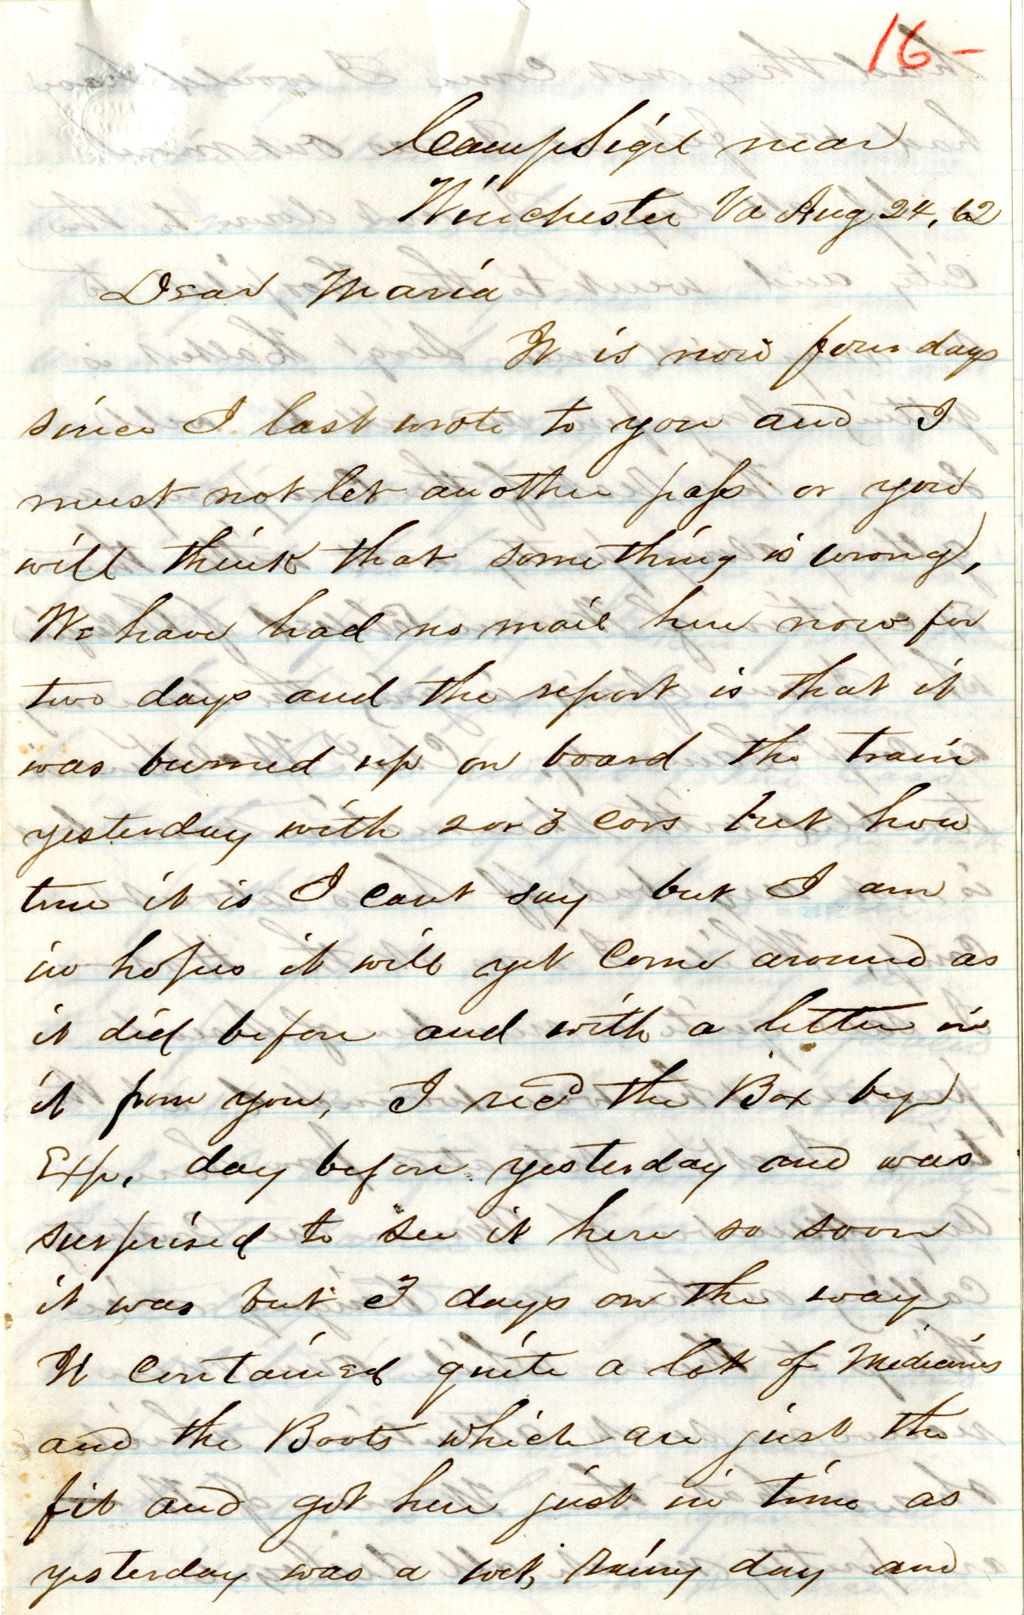 16-
Camp Sigel near
Winchester Va Aug 24, 62
Dear Maria
It is now four days
since I last wrote to you and I
must not let another pass or you
will think that something is wrong,
We have had no mail here now for
two days and the report is that it
was burned up on board the train
yesterday with 2 or 3 cars but how
true it is I cant say but I am
in hopes it will yet come around as
it did before and with a letter in
it from you, I recd the Box by
Exp, day before yesterday and was
surprised to see it here so soon
it was but 3 days on the way
It contained quite a lot of Medicines
and the Boots which are just the
fit and got here just in time as
yesterday was a wet, rainy day and